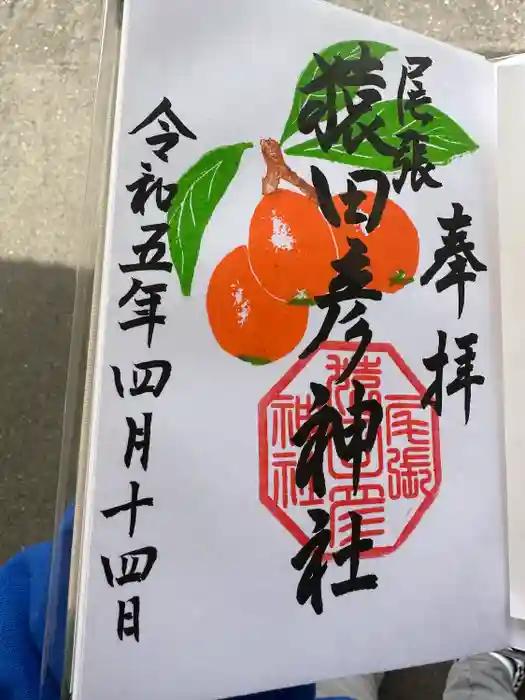 奉拝
尾張
猿田彦神社
尾張
猿田彦
神社
令和五年四月十四日